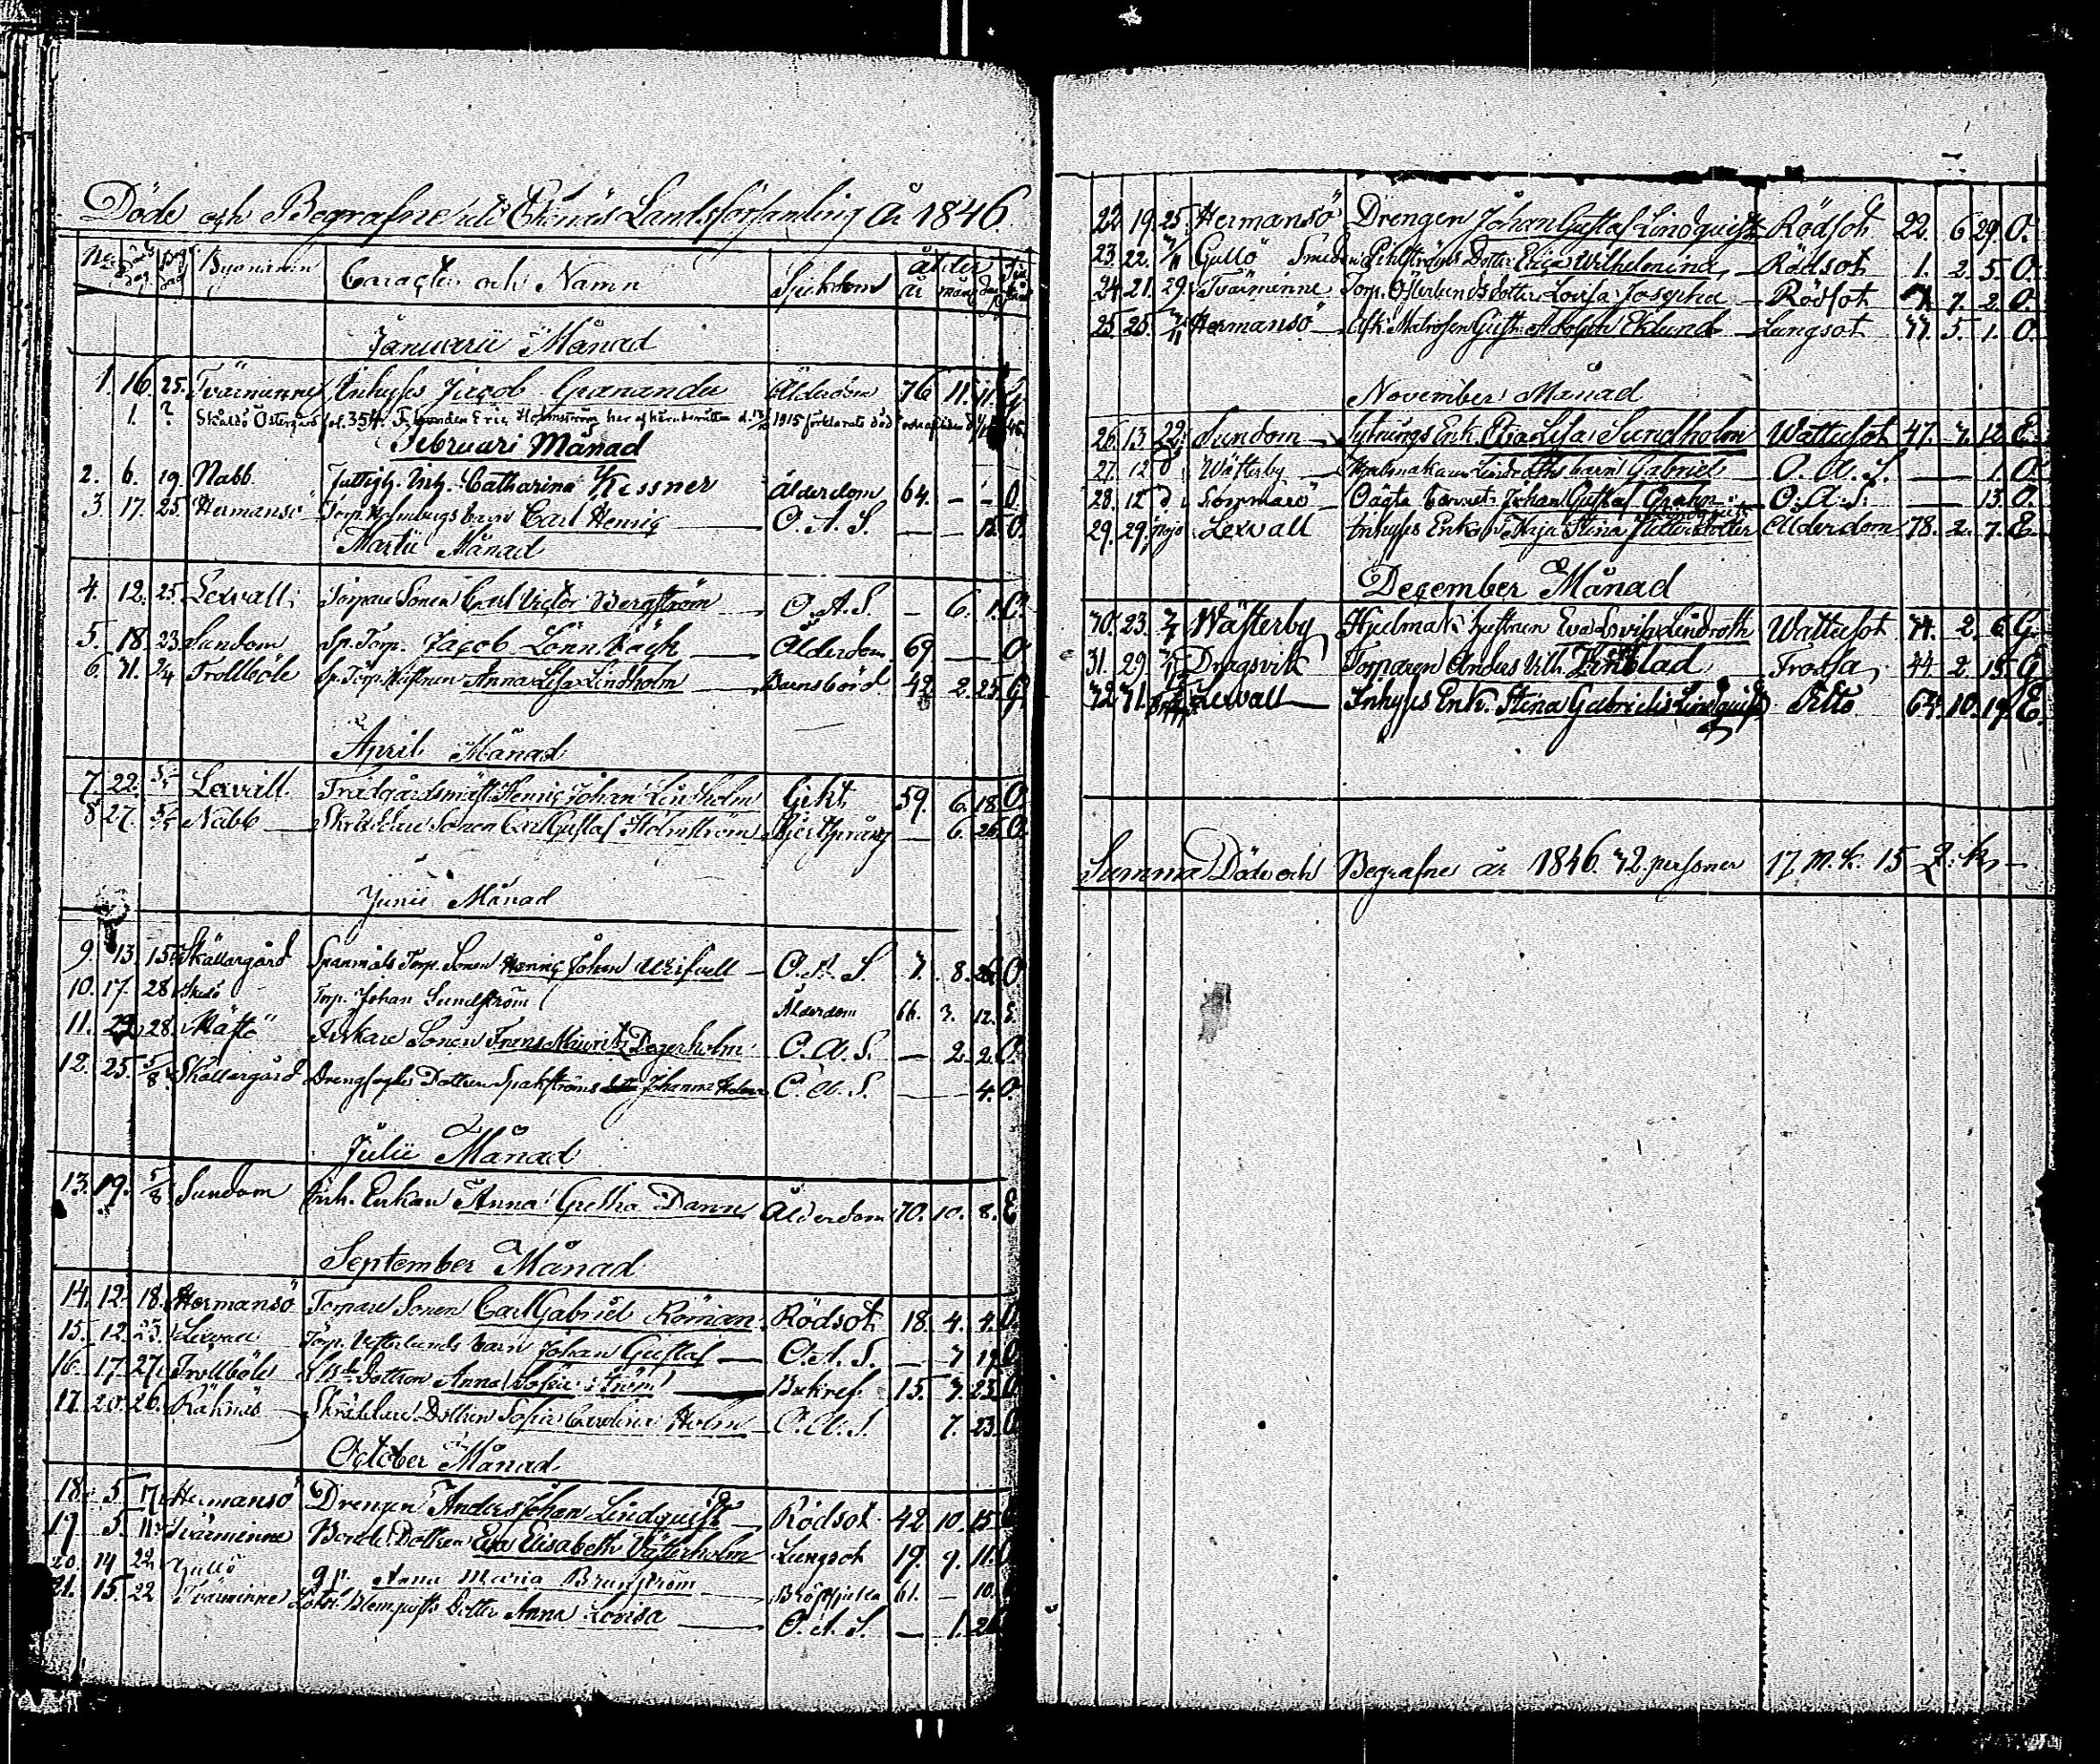 Döde och Begrafne uti Ekenäs Landsförsamling År 1846.
No Död dag Begr dag Byanamn Caracter och Namn Sjukdom ålder år mån dag
Januarii Månad
1. 16. 25. Tvärminne Inhyses Jacob Granander Ålderdom 76 11. 11. G.
1. ? Skåldö Östergård fol. 354. Eric Holmström 1915 förklarats död
Februari Månad
2. 6. 19. Nabb. Fattigh. Enk. Catharina Kessner Ålderdom 64. – – O.
3. 17. 25. Hermansö Torp. Holmbergs barn Carl Henric O. A. S. – – 15. O.
Martii Månad
4. 12. 25. Lexvall Torpare Sonen Carl Victor Bergström O. A. S. – 6. 1. O.
5. 18. 23. Sundom Sp. Torp. Jacob Lönnbäck Ålderdom 69 – O
6. 31. 2/4 Trollböle Sp. Torp. Hustrun Anna Lisa Lindholm Barnsbörd 42 2. 25. G.
April Månad
7. 22. 3/5 Lexvall Trädgårdsmäst. Henric Johan Lindholm Gikt 59. 6. 18. O
8 27. 3/5 Nabb Skräddare Sonen Carl Gustaf Holmström – 6. 26. O.
Junii Månad
9. 13. 15. Skällargård Spanmåls Torp. Sonen Henric Johan O. A. S. 7. 8. 26. O
10. 17. 28 Torp. Johan Sundström Ålderdom 66. 3. 12. E.
11. 22 28. Sonen Frans Mauritz Degerholm O. A. S. – 2. 2. O.
12. 25. 5/8 Skällargård Dottren Spakströms Johanna Helena O. A. S. – 4. O.
Julii Månad
13. 19. 5/8 Sundom Inh. Enkan Anna Gretha Dann Ålderdom 70. 10. 8. E
September Månad
14. 12. 18. Hermansö Torpare Sonen Carl Gabriel Röman Rödsot 18. 4. 4. O.
15. 12. 23. Lexvall Torp. Vesterlunds barn Johan Gustaf O. A. S. – 7 19 O
16. 17 27. Trollböle Dottren Anna Sofia Ström Bukref 15. 7. 23. O
17. 20. 26. Räknäs Skräddare Dottren Sofia Carolina Holm O. A. S. 7. 23. O
October Månad
18. 5 Hermansö Drengen Anders Johan Lindquist Rödsot 42 10. 15
19 5. 11. Tvärminne Bonde Dottren Eva Elisabeth Västerholm Lungsot 19. 9. 11.
20 14 22 Gullö Anna Maria Brunström Bröstsjuka 61. – 10.
21. 15. 22 Tvärminne Dotter Anna Lovisa O. A. S. – 1. 26
22. 19. 25. Hermansö Drengen Johan Gustaf Lindquist Rödsot 22. 6 29. O.
23. 22. 1/11 Gullö Smeden Dotter Erica Wilhelmina Rödsot 1. 2. 5. O.
24. 21. 29. Tvärminne Torp. Österlunds Dotter Lovisa Josepha Rödsot 7. 2. O.
25. 25. 1/11 Hermansö Afsk. Matrosen Gust. Adolph Eklund Lungsot 77. 5. 1. O.
November Månad
26. 13. 22. Sundom Enk. Eva Lisa Sundholm Wattusot 47. 7. 12. E.
27. 12 Wästerby Lindroths barn Gabriel O. A. S. — 1. O.
28. 12 Sommarö Oägta barnet Johan Gustaf Grahn O. A. S. — 13. O.
29. 29. Lexvall Inhyses Enkan Maja Stina Ålderdom 78. 2. 7. E
December Månad
30. 23. Wästerby Hjulmak. hustrun Eva Lovisa Lindroth Wattusot 74. 2. 6. G.
31. 29. Dragsvik Torparen Anders Vilh. Frossa 44. 2 15. G
32 31. Lexvall Inhyses Enk. Stina Gabrielis Lindquist Ditto 64. 10. 19. E.
Summa Döde och Begrafne år 1846. 32. personer 17 M. k. 15 Q. k.